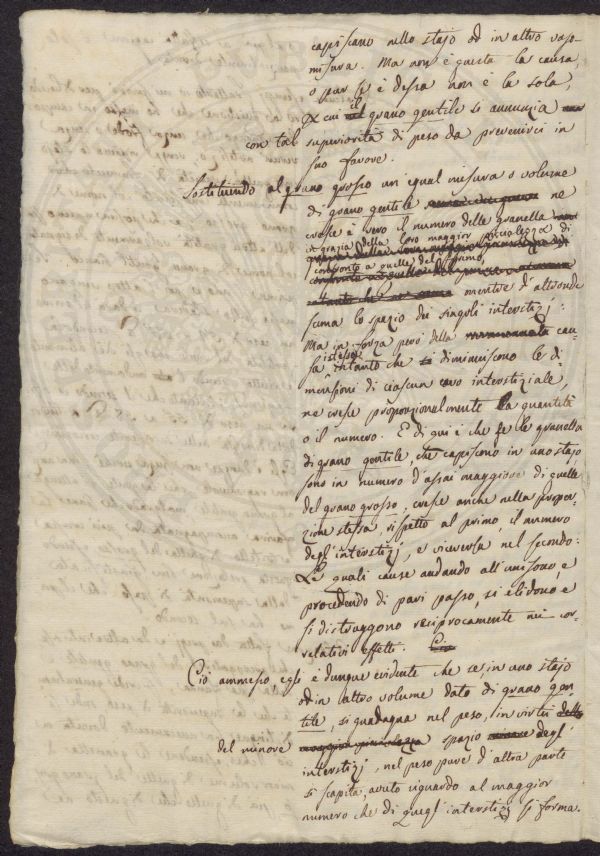 capiscano nello stajo od in altro vaso-
misura. Ma non è questa la causa,
o pur se è dessa non è la sola,
per cui il grano gentile si annunzia
con tal superiorità di peso da prevenirci in
suo favore.
Sostituendo al grano grosso un'egual misura o volume
di grano gentile ne
cresce è vero il numero delle granella
in grazia della loro maggior picciolezza di
confronto a quelle del primo,
mentre d'altronde
scema lo spazio dei singoli interstizj:
Ma in forza però della cau-
sa istessa intanto che si diminuiscono le di-
mensioni di ciascun cavo interstiziale,
ne cresce proporzionalmente la quantità
o il numero. E di qui è che se le granella
di grano gentile, che capiscono in uno stajo
sono in numero d'assai maggiore di quelle
del grano grosso, cresce anche nella propor-
zione stessa, rispetto al primo, il numero
degl'interstizj, e viceversa nel secondo.
Le quali cause andando all'unisono, e
procedendo di pari passo, si elidono e
si distruggono reciprocamente nei cor-
relativi effetti.
Ciò ammesso, egli è dunque evidente che se in uno stajo
od in altro volume dato di grano gen-
tile, si guadagna nel peso, in virtù
del minore spazio degl'
interstizj, nel peso pure d'altra parte
si scapita, avuto riguardo al maggior
numero che di quegl'interstizj si forma.